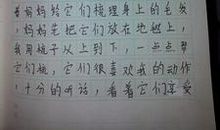 着妈妈给它们梳理身上的毛发
,妈妈先把它们放在地毯上,
我用梳子从上到下,一点点帮
它们梳,它们很喜欢我的动作
,十分的听话,看着它们亲爱